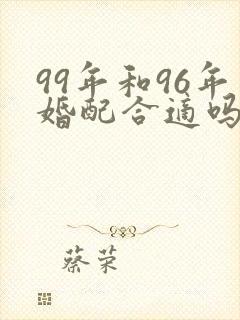 99年和96年
婚配合适吗
蔡荣